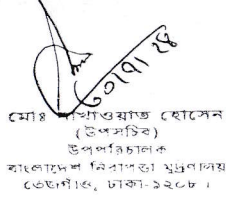 ৩০।৭।২৪
মোঃ সাখাওয়াত হোসেন
(উপসচিব)
উপপরিচালক
বাংলাদেশ নিরাপত্তা মুদ্রণালয়
তেজগাঁও, ঢাকা-১২০৮।